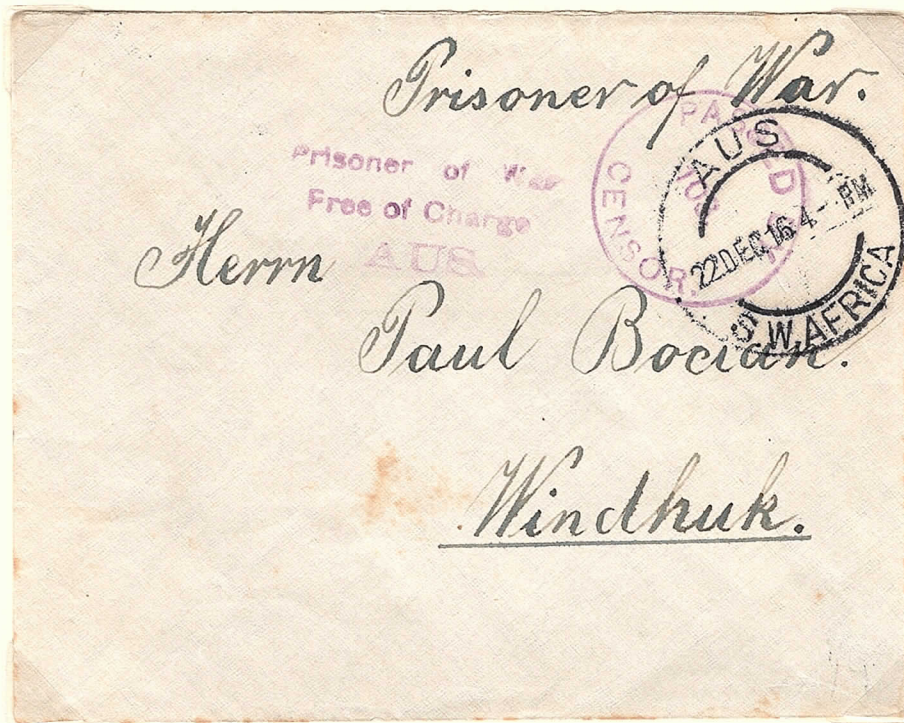 Prisoner of War.
Prisoner of War
Free of Charge
AUS
PASSED
CENSOR.
AUS
22 DEC 16 4 - PM
S.W. AFRICA
Herrn
Paul Bocian.
Windhuk.